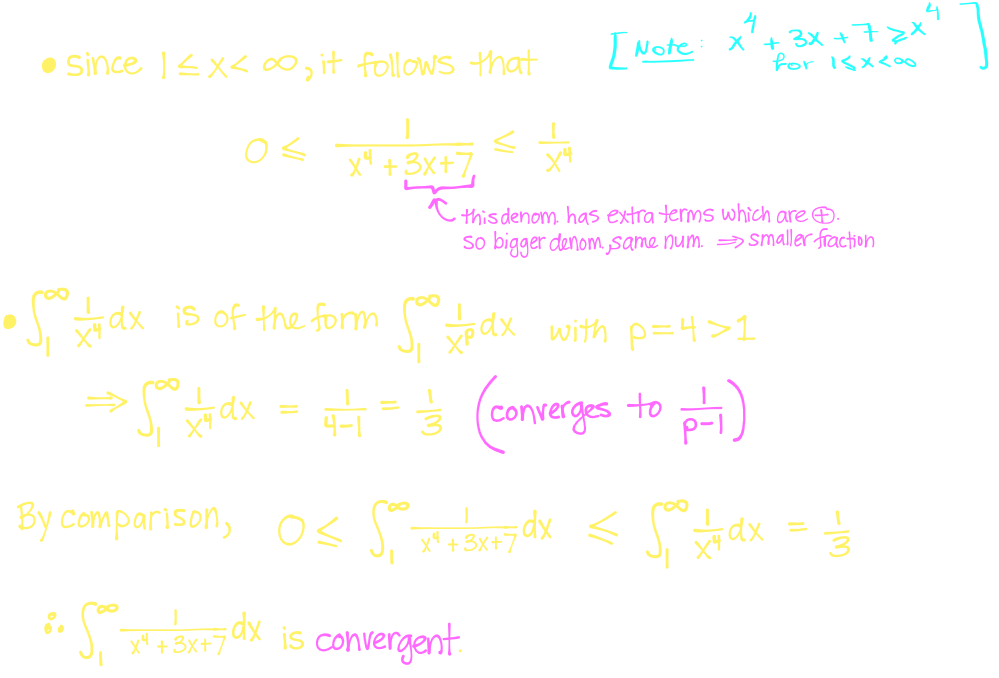 [Note: x⁴ + 3x + 7 ⩾ x⁴
for 1 ⩽ x < ∞]
• since 1 ≤ x < ∞, it follows that
0 ⩽ 1/(x⁴ + 3x+7) ⩽ 1/x⁴
this denom. has extra terms which are ⊕.
so bigger denom., same num. ⇒ smaller fraction
• ∫₁^∞ 1/x⁴ dx is of the form ∫₁^∞ 1/xᵖ dx with p=4>1
⇒ ∫₁^∞ 1/x⁴ dx = 1/(4-1) = 1/3 (converges to 1/(p-1))
By comparison, 0 ⩽ ∫₁^∞ 1/(x⁴ + 3x+7) dx ⩽ ∫₁^∞ 1/x⁴ dx = 1/3
∴ ∫₁^∞ 1/(x⁴ + 3x+7) dx is convergent.